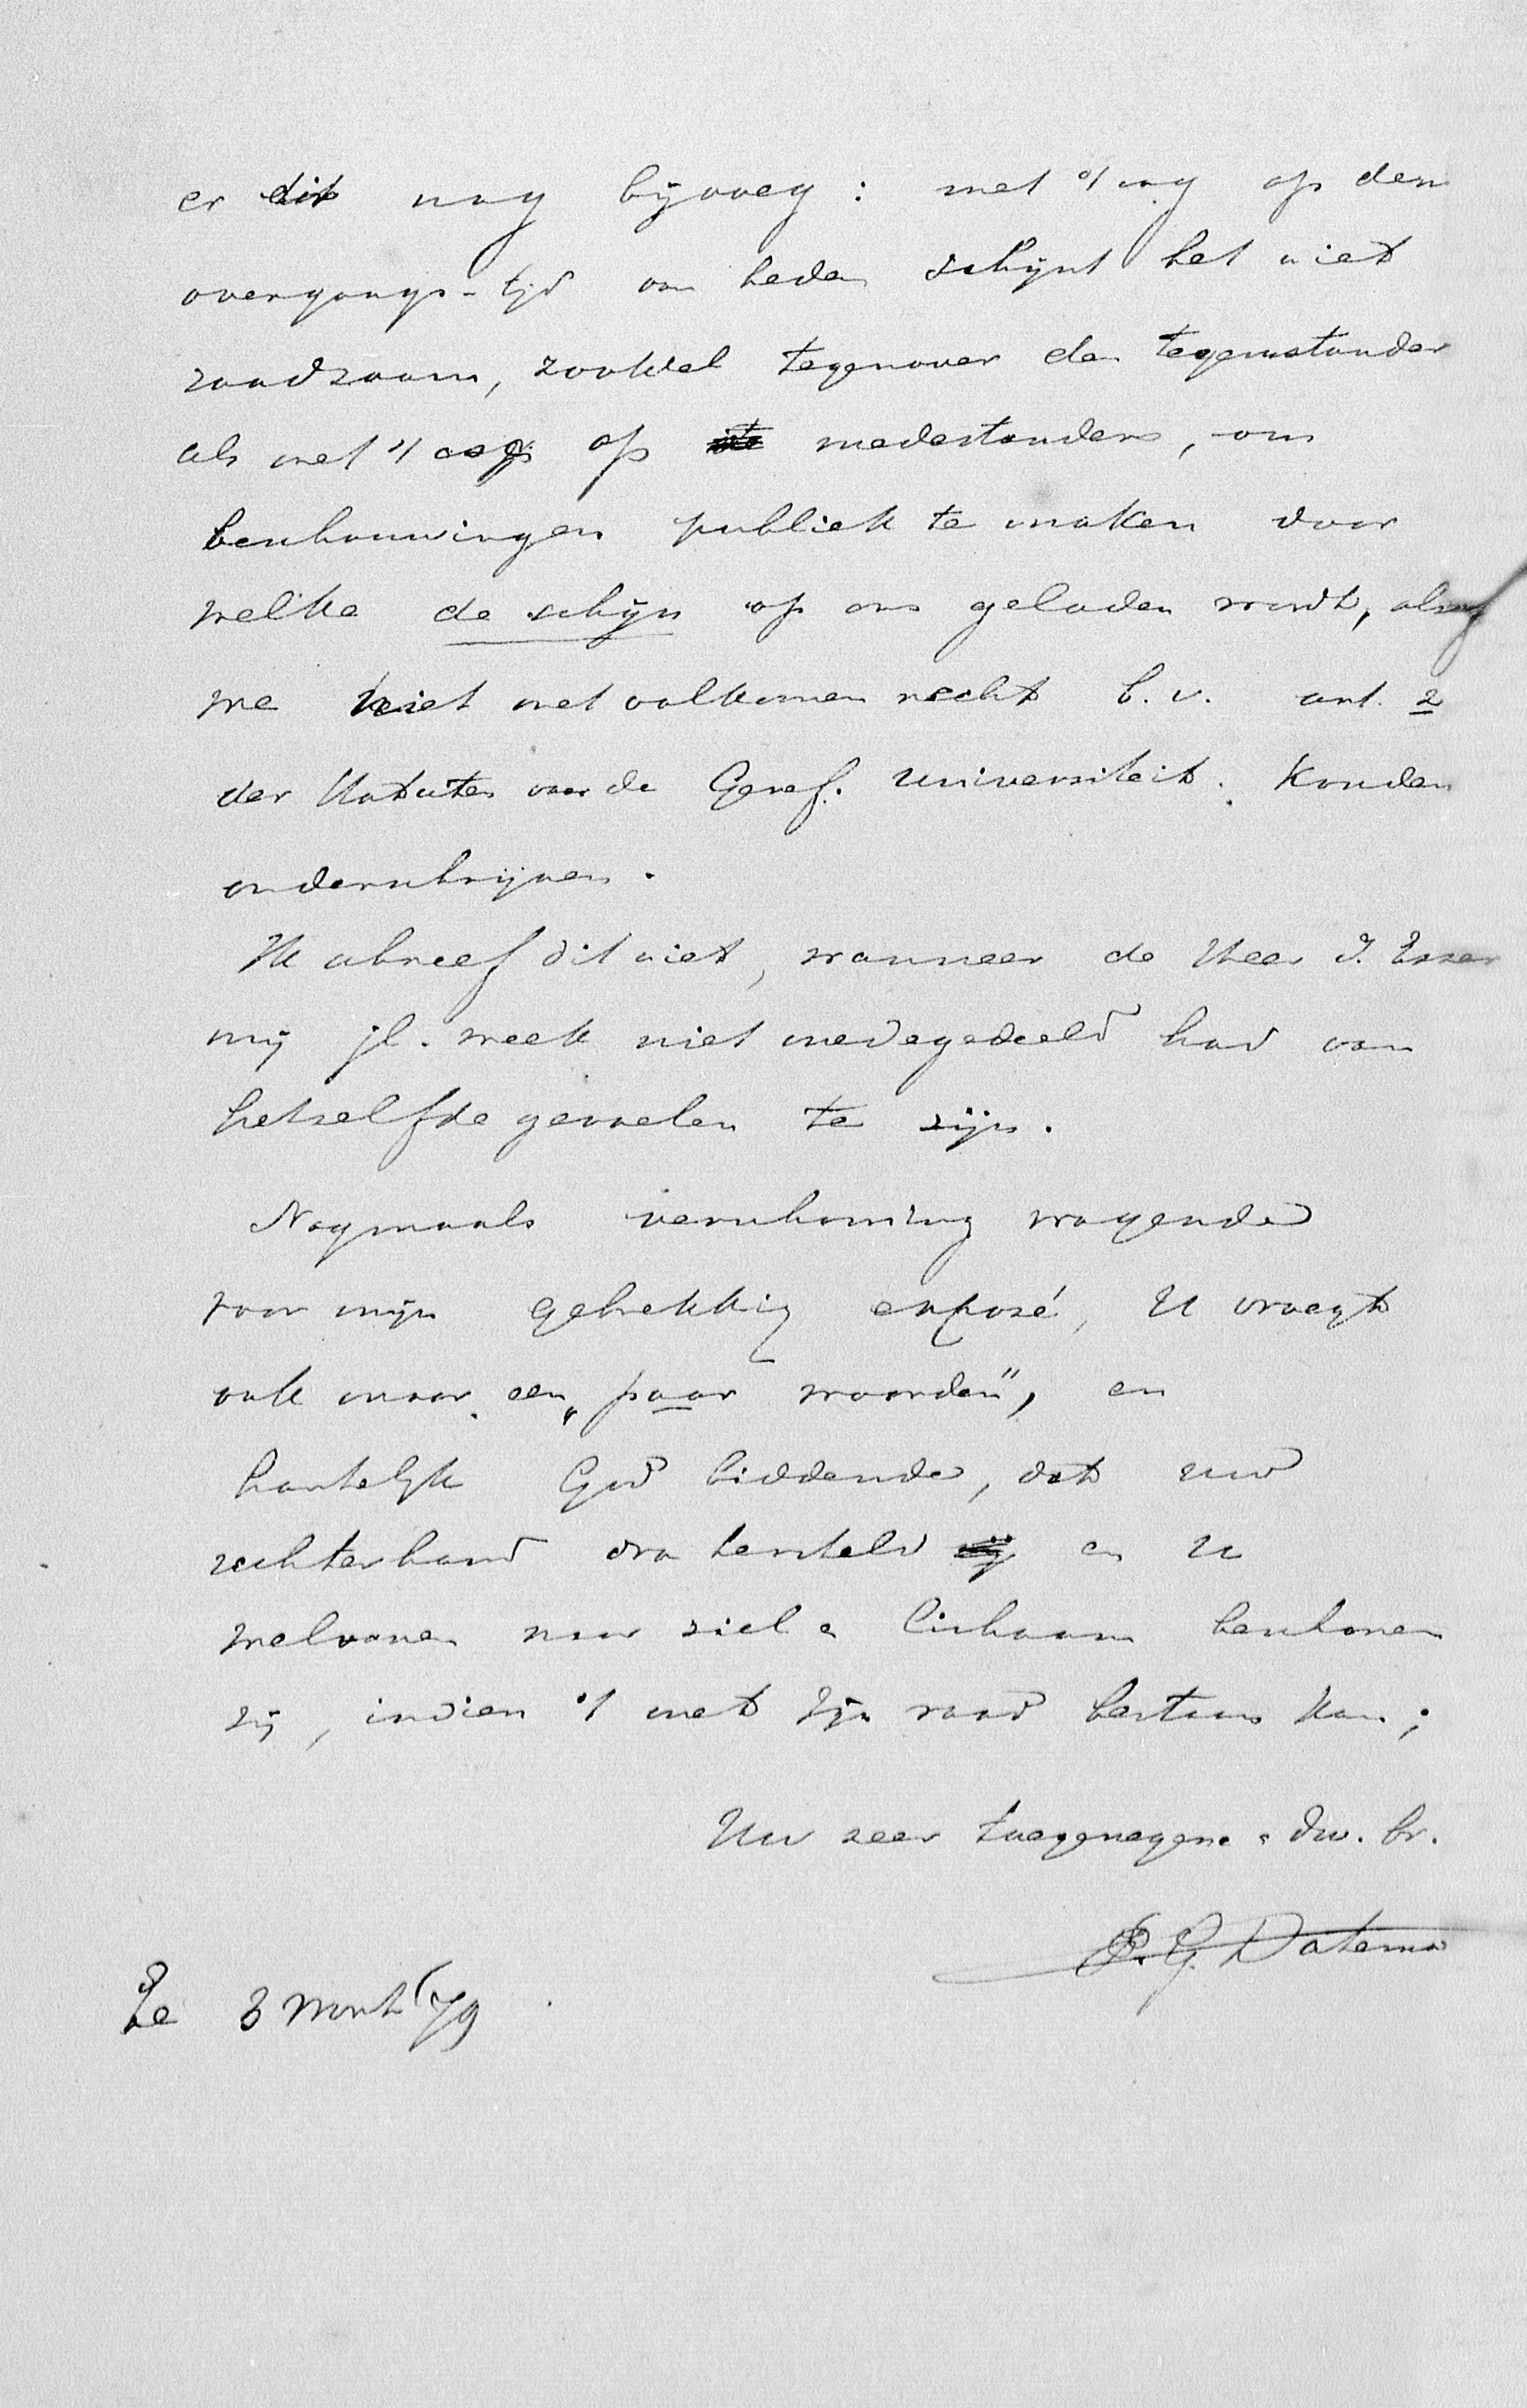 er dit nog bijvoeg: met 't oog op den
overgangs-tijd van heden schijnt het niet
raadzaam, zoowel tegenover den tegenstander
als met 't oog op medestanders, om
beschouwingen publiek te maken door
welke de schijn op ons geladen wordt, alsof
we niet met volkomen recht b.v. art. 2
der Statuten voor de Geref. Universiteit konden
onderschrijven.
Ik schreef dit niet, wanneer de Heer I. Esser
mij jl. week niet medegedeeld had van
hetzelfde gevoelen te zijn.
Nogmaals verschooning vragende
voor mijn gebrekkig exposé, U vraagt
ook maar een „paar woorden”, en
hartelijk God biddende, dat uw
rechterhand dra hersteld en U
welvaren naar ziel & lichaam beschoren
zij, indien 't met Zijn raad bestaan kan;
Uw zeer toegenegen & dw. br.
P. G. Datema
3 Maart /79